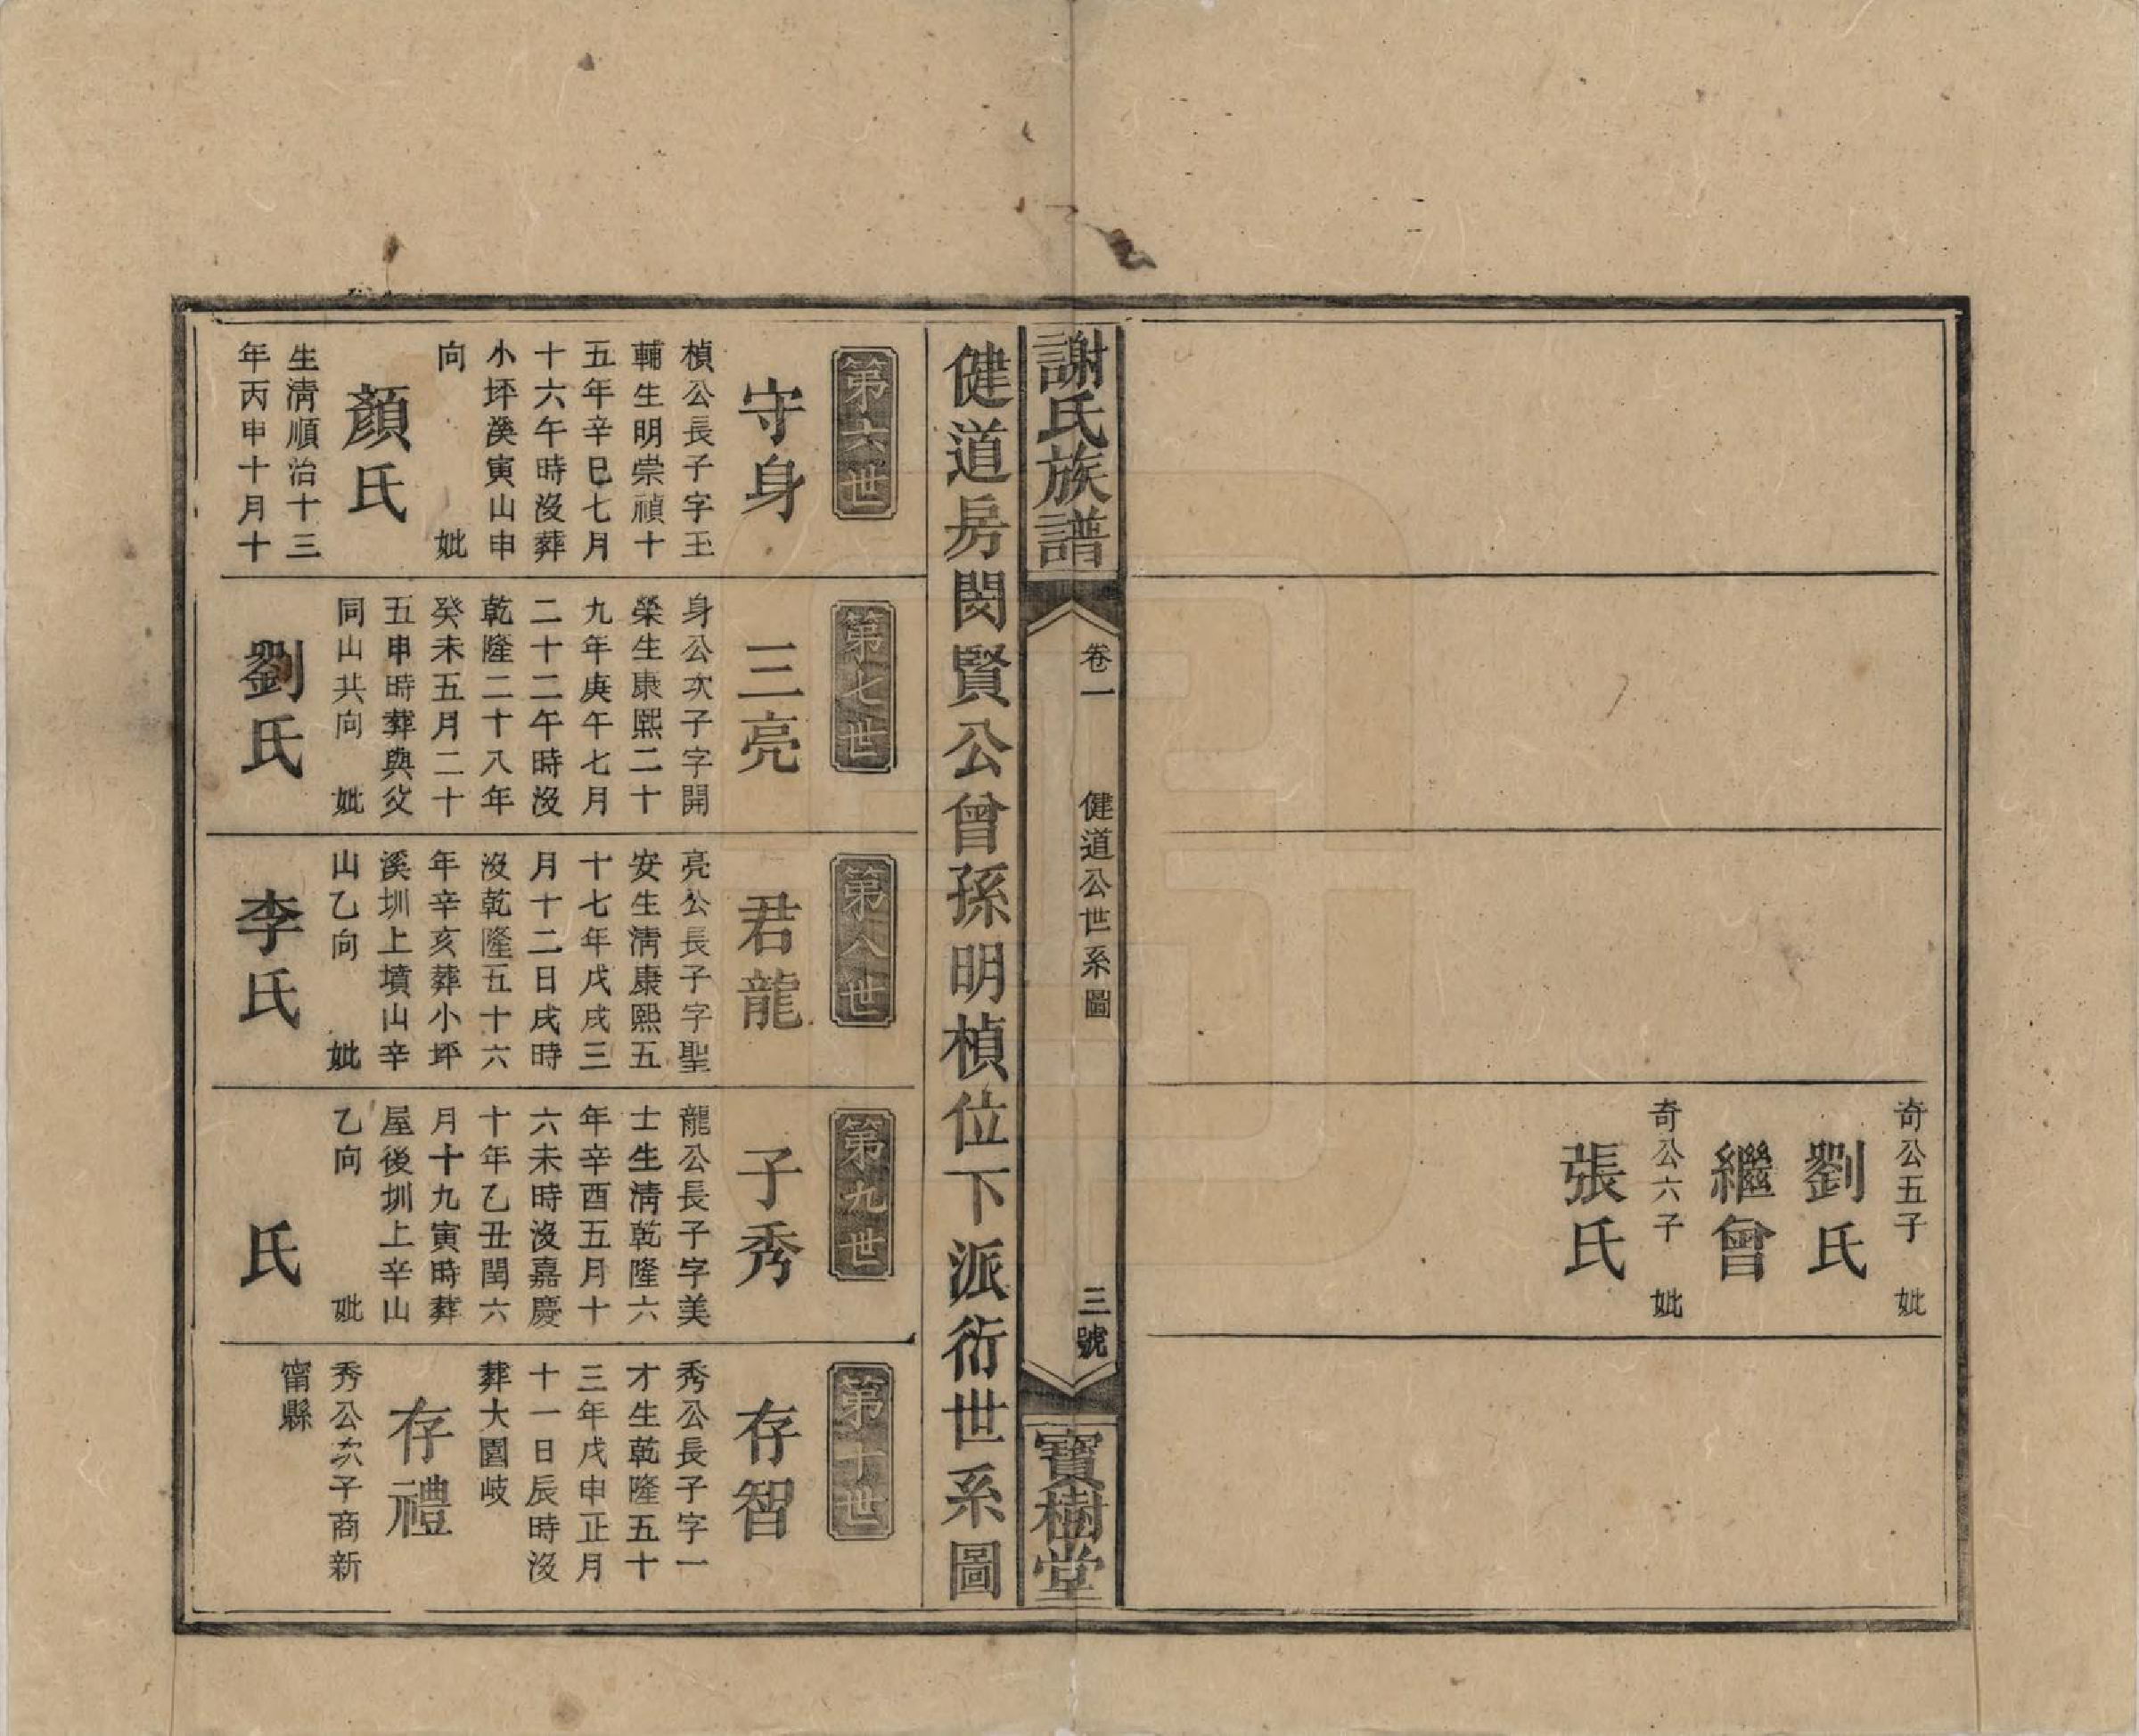 奇公五子 妣
劉氏
繼曾
奇公六子 妣
張氏
謝氏族譜
卷一 健道公世系圖 三號
寶樹堂
健道房閔賢公曾孫明楨位下派衍世系圖
第六世
守身
楨公長子字玉
輔生明崇禎十
五年辛巳七月
十六午時沒葬
小坪溪寅山申
向 妣
顏氏
生清順治十三
年丙申十月十
第七世
三亮
身公次子字開
榮生康熙二十
九年庚午七月
二十二午時沒
乾隆二十八年
癸未五月二十
五申時葬與父
同山共向 妣
劉氏
第八世
君龍
亮公長子字聖
安生清康熙五
十七年戊戌三
月十二日戌時
沒乾隆五十六
年辛亥葬小坪
溪圳上墳山辛
山乙向 妣
李氏
第九世
子秀
龍公長子字美
士生清乾隆六
年辛酉五月十
六未時沒嘉慶
十年乙丑閏六
月十九寅時葬
屋後圳上辛山
乙向 妣
氏
第十世
存智
秀公長子字一
才生乾隆五十
三年戊申正月
十一日辰時沒
葬大園岐
存禮
秀公次子商新
甯縣